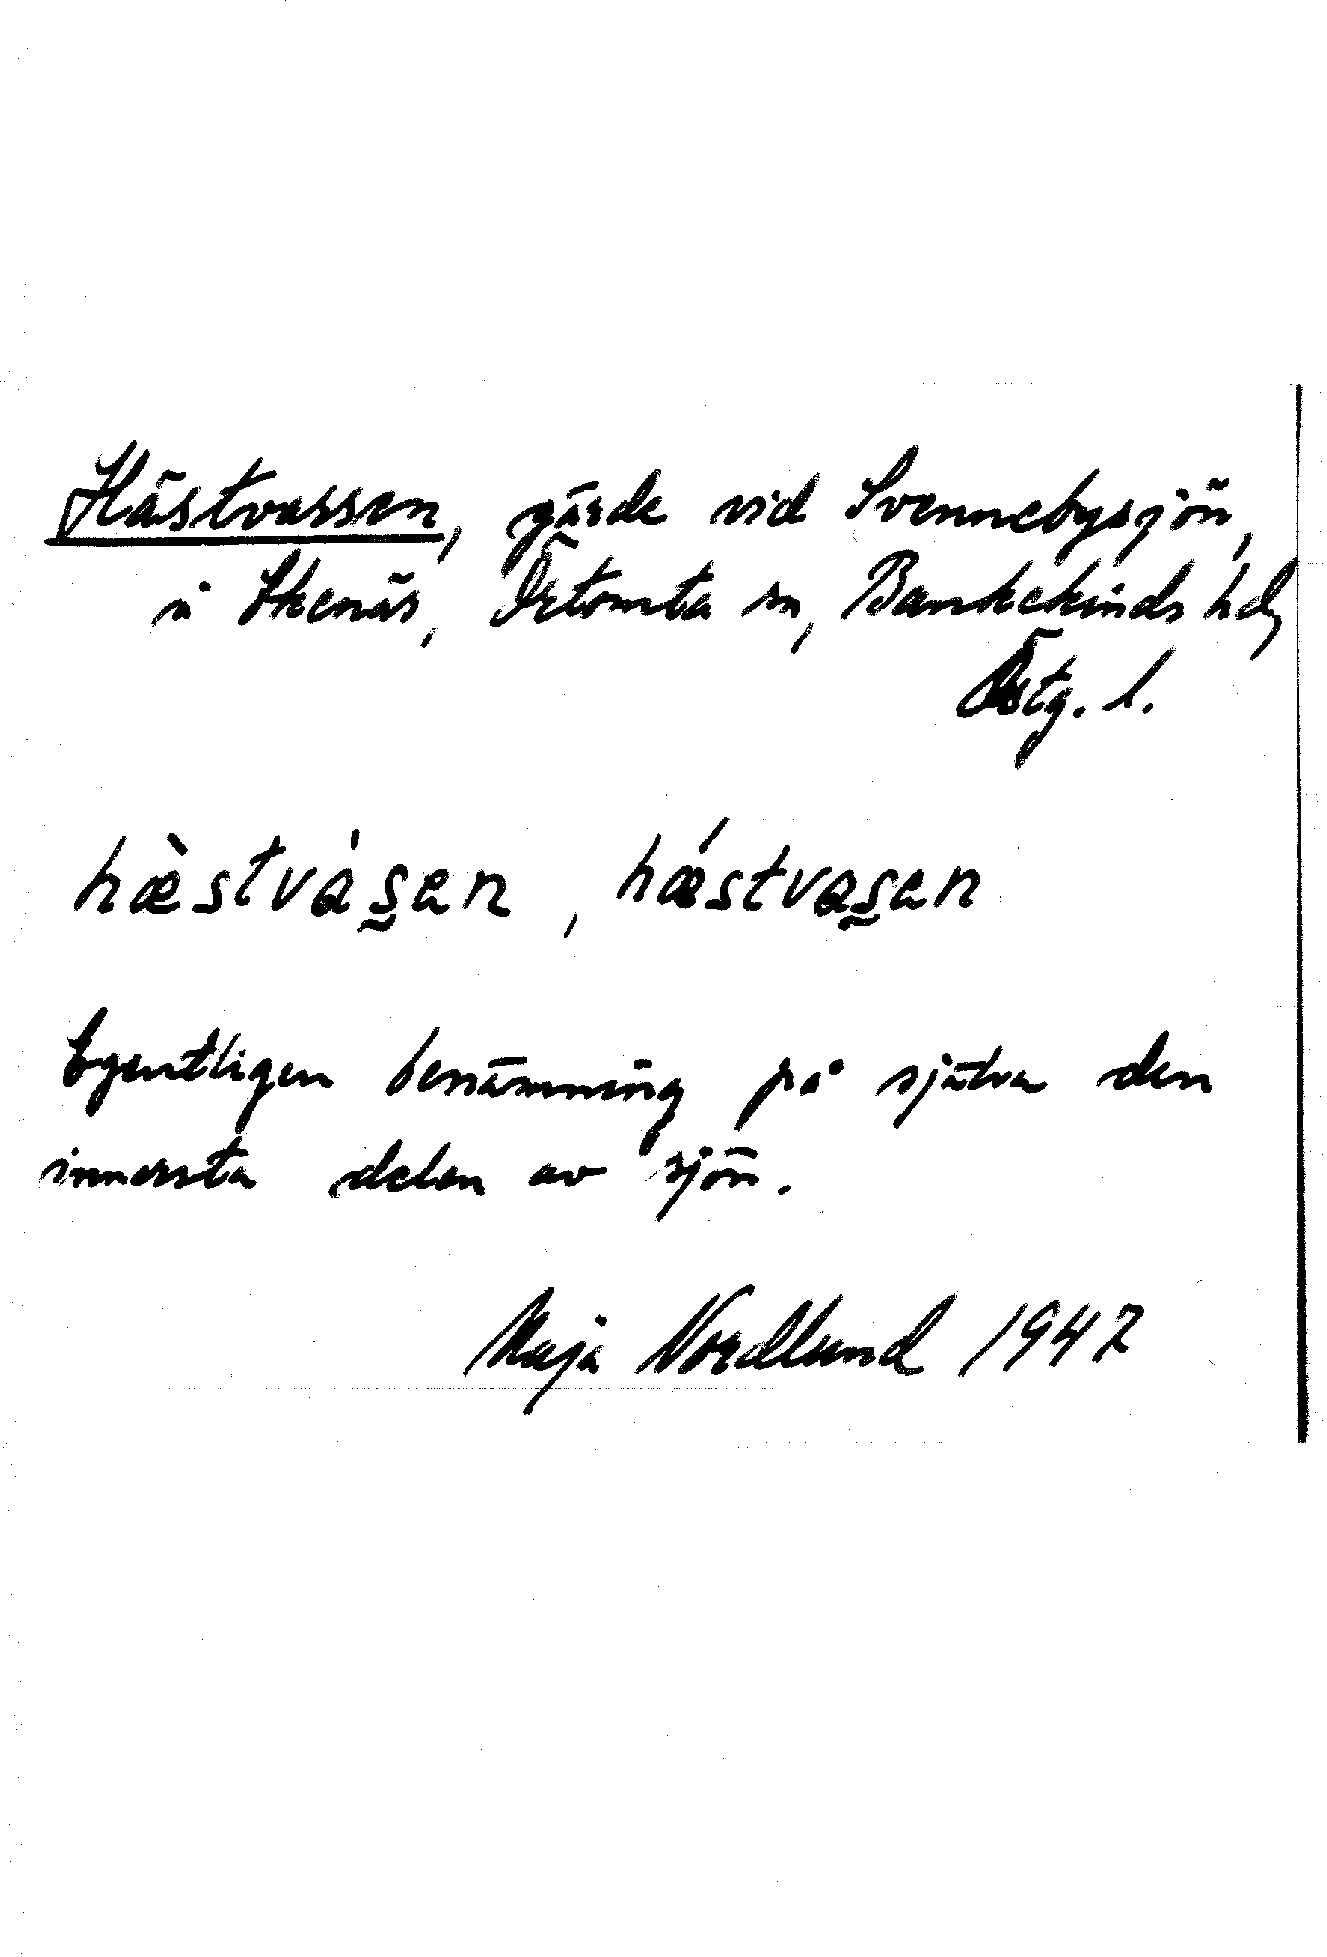 Hästvassen, gärde vid Svennebysjön,
i Skenäs, Örtomta sn, Bankekinds hd,
Östg. l.
hæ̀stvàs̬en, hǽstvas̬en
Egentligen benämning på själva den
innersta delen av sjön.
Maja Nordlund 1947